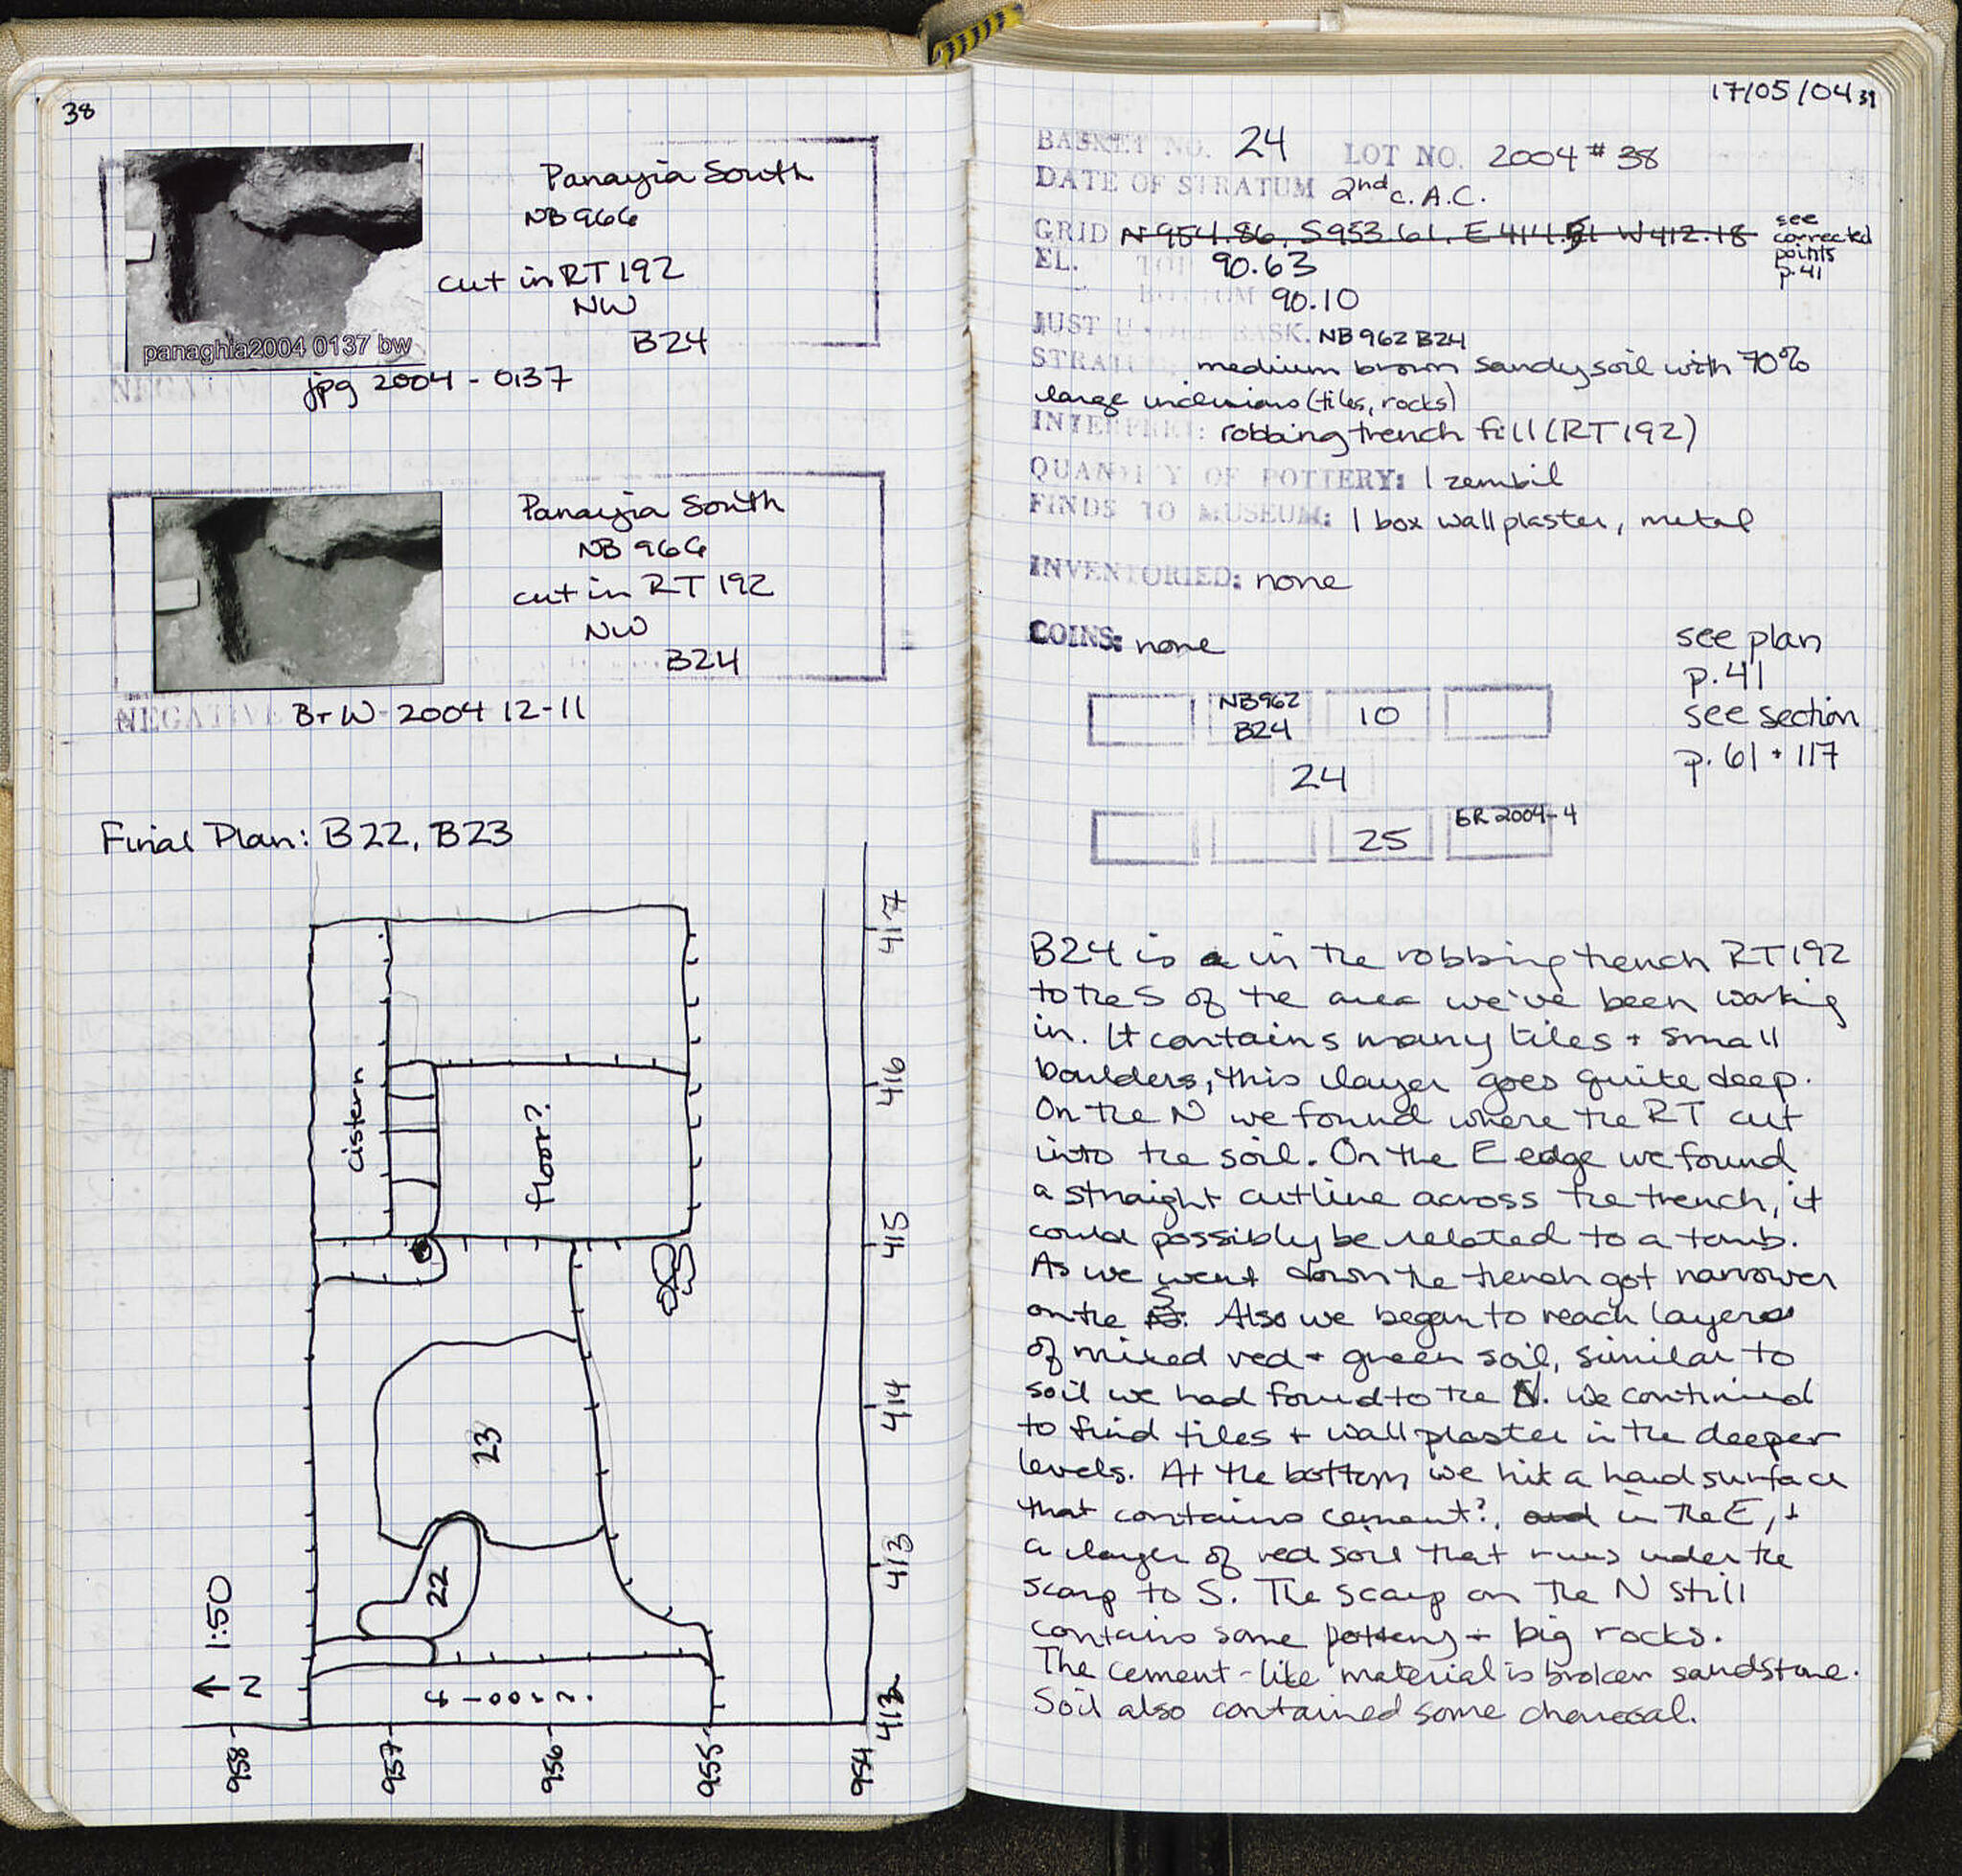 38
Panayia South
NB 966
cut in RT 192
NW
B24
panaghia2004 0137 bw
jpg 2004 - 0137
Panayia South
NB 966
cut in RT 192
NW
B24
NEGATIVE B+W-2004 12-11
Final Plan: B22, B23
cistern
floor?
23
22
floor
1:50
N
417
416
415
414
413
412
958
957
956
955
954
17/05/04 39
BASKET NO. 24 LOT NO. 2004 # 38
DATE OF STRATUM 2nd c. A.C.
GRID N 954.86, S 953.61, E 414.51 W 412.18
see
corrected
points
p. 41
EL. TOP 90.63
BOTTOM 90.10
JUST UNDER BASK. NB 962 B24
STRATUM: medium brown sandy soil with 70%
large inclusions (tiles, rocks)
INTERPRET: robbing trench fill (RT 192)
QUANTITY OF POTTERY: 1 zembil
FINDS TO MUSEUM: 1 box wall plaster, metal
INVENTORIED: none
COINS: none
see plan
p. 41
see section
p. 61 + 117
NB962
B24
10
24
25
GR 2004-4
B24 is in the robbing trench RT 192
to the S of the area we've been working
in. It contains many tiles + small
boulders, this layer goes quite deep.
On the N we found where the RT cut
into the soil. On the E edge we found
a straight cutline across the trench, it
could possibly be related to a tomb.
As we went down the trench got narrower
on the S. Also we began to reach layers
of mixed red + green soil, similar to
soil we had found to the N. We continued
to find tiles + wall plaster in the deeper
levels. At the bottom we hit a hard surface
that contains cement?, and in the E, +
a layer of red soil that runs under the
scarp to S. The scarp on the N still
contains some pottery + big rocks.
The cement-like material is broken sandstone.
Soil also contained some charcoal.